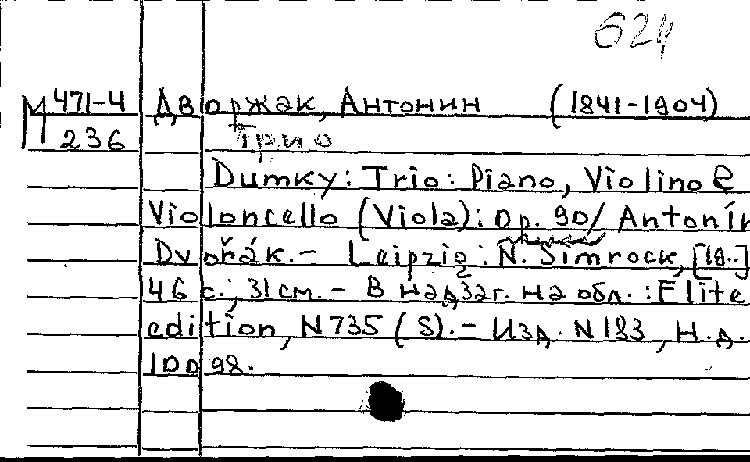 624
М 471-4 Дворжак, Антонин (1841-1904)
236 Трио
Dumky: Trio: Piano, Violino e
Violoncello (Viola): op. 90/ Antonín
Dvořák. - Leipzig: N. Simrock, [18..]
46 с.; 31 см. - В надзаг. на обл.: Elite
edition, N 735 (S). - Изд. N 183, н.д.
10098.